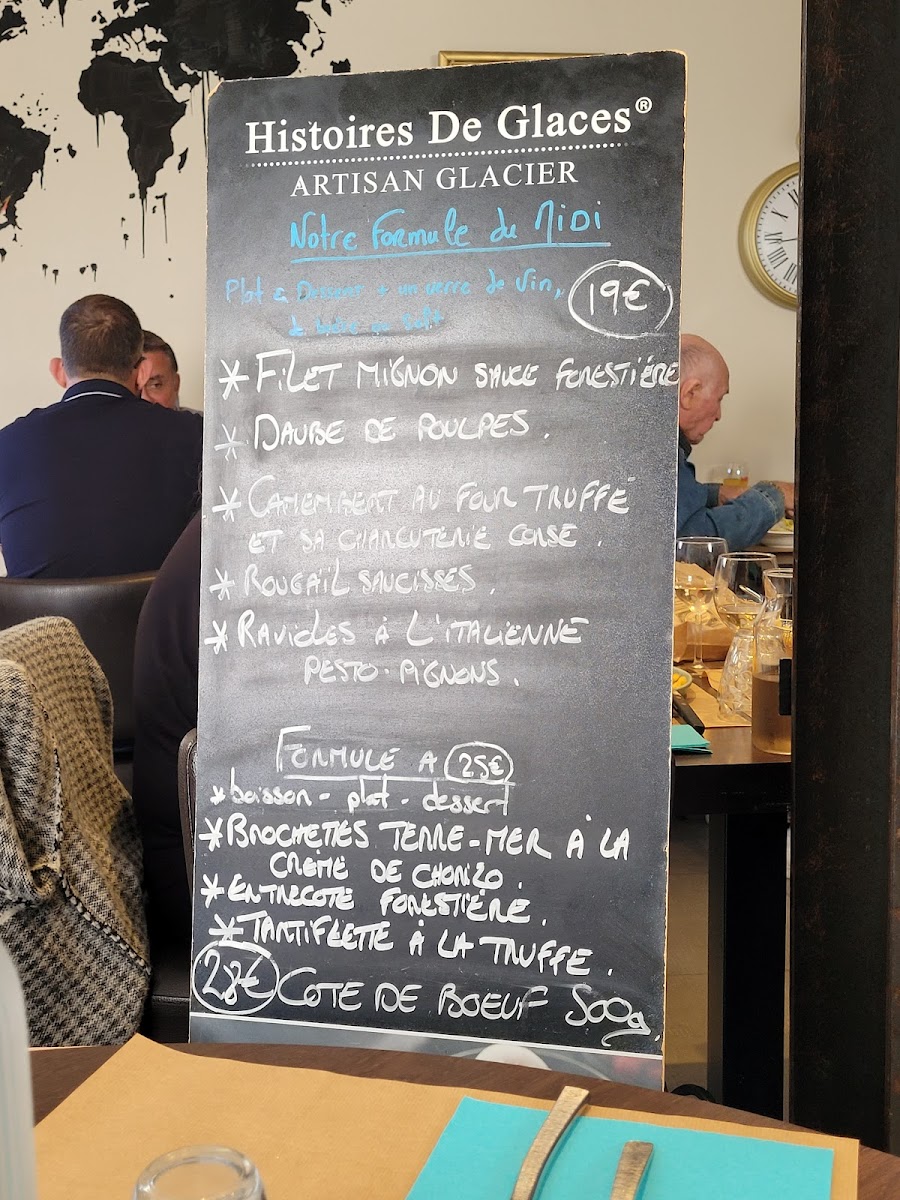 Histoires De Glaces®
ARTISAN GLACIER
Notre Formule du MiDi
Plat & Dessert + un verre de Vin,
19€
* FiLET MiGNON SAUCE FORESTIÉRE
* DAUBE DE POULPES.
* CAMEMBERT AU FOUR TRUFFÉ
ET SA CHARCUTERIE CORSE.
* ROUGAIL SAUCISSES.
* RAVIOLES À L'ITALIENNE
PESTO. PIGNONS.
FORMULE A 25€
* boisson - plat - dessert
* BROCHETTES TERRE-MER À LA
CRÈME DE CHORIZO.
* ENTRECOTE FORESTIÈRE.
* TARTIFLETTE À LA TRUFFE.
28€ COTE DE BOEUF 500g